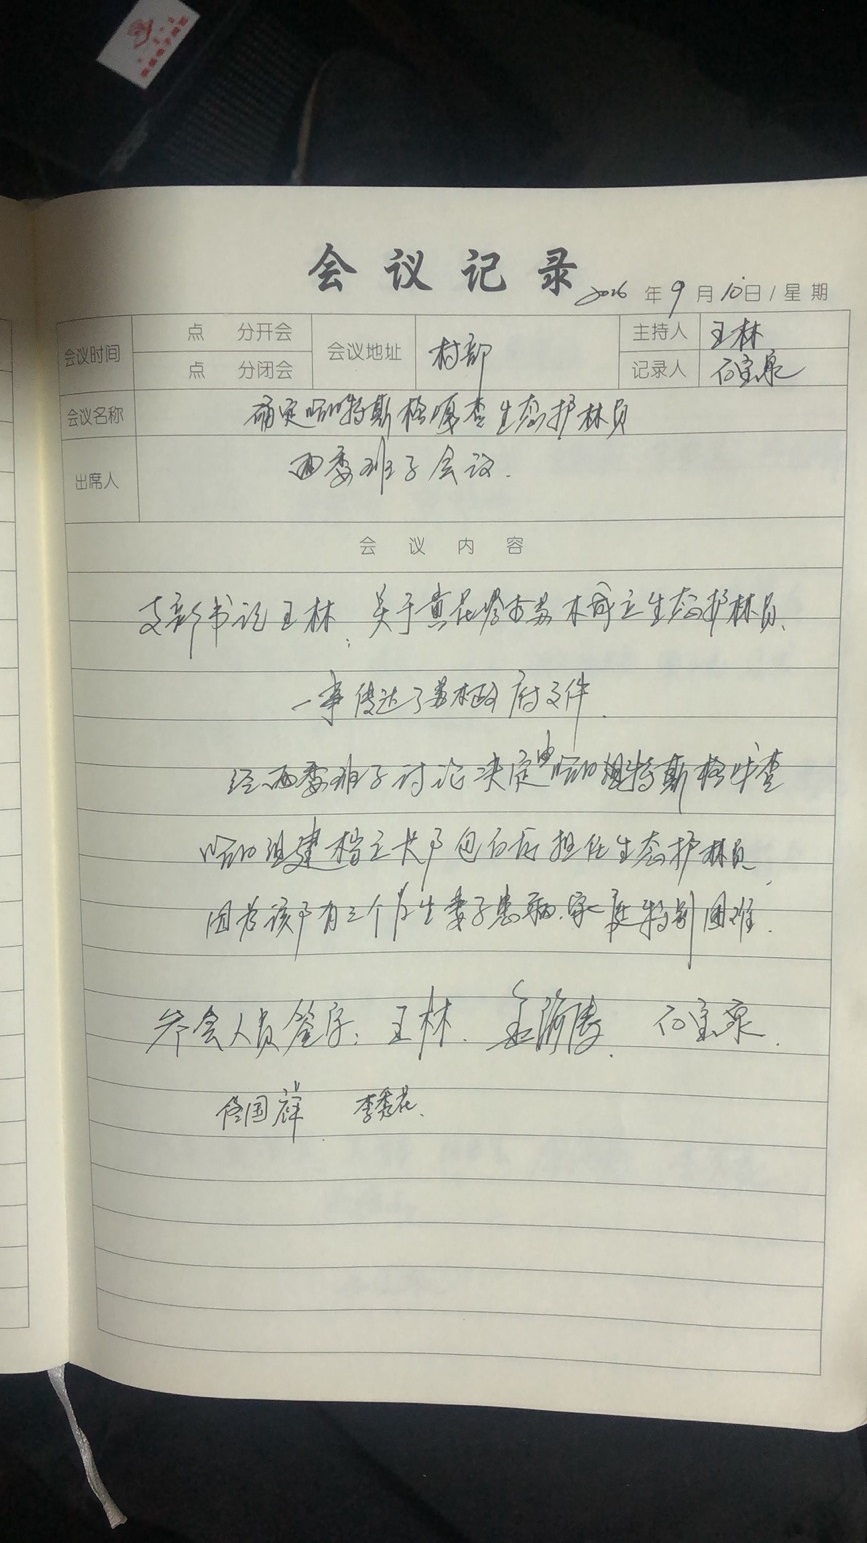 会议记录
2016 年 9 月 10 日 / 星期
会议时间 点 分开会 会议地址 村部 主持人 王林
点 分闭会 记录人 石宝泉
会议名称 确定哈日特斯格嘎查生态护林员
出席人 两委班子会议.
会议内容
支部书记王林: 关于黄花 苏木 生态护林员、
一事传达了苏木政府文件.
经两委班子讨论决定由哈日 特斯格嘎查
哈日组建档立卡户包 担任生态护林员
因为该户有三个学生妻子患病、家庭特别困难.
参会人员签字: 王林. 石宝泉.
佟国祥 李秀花.